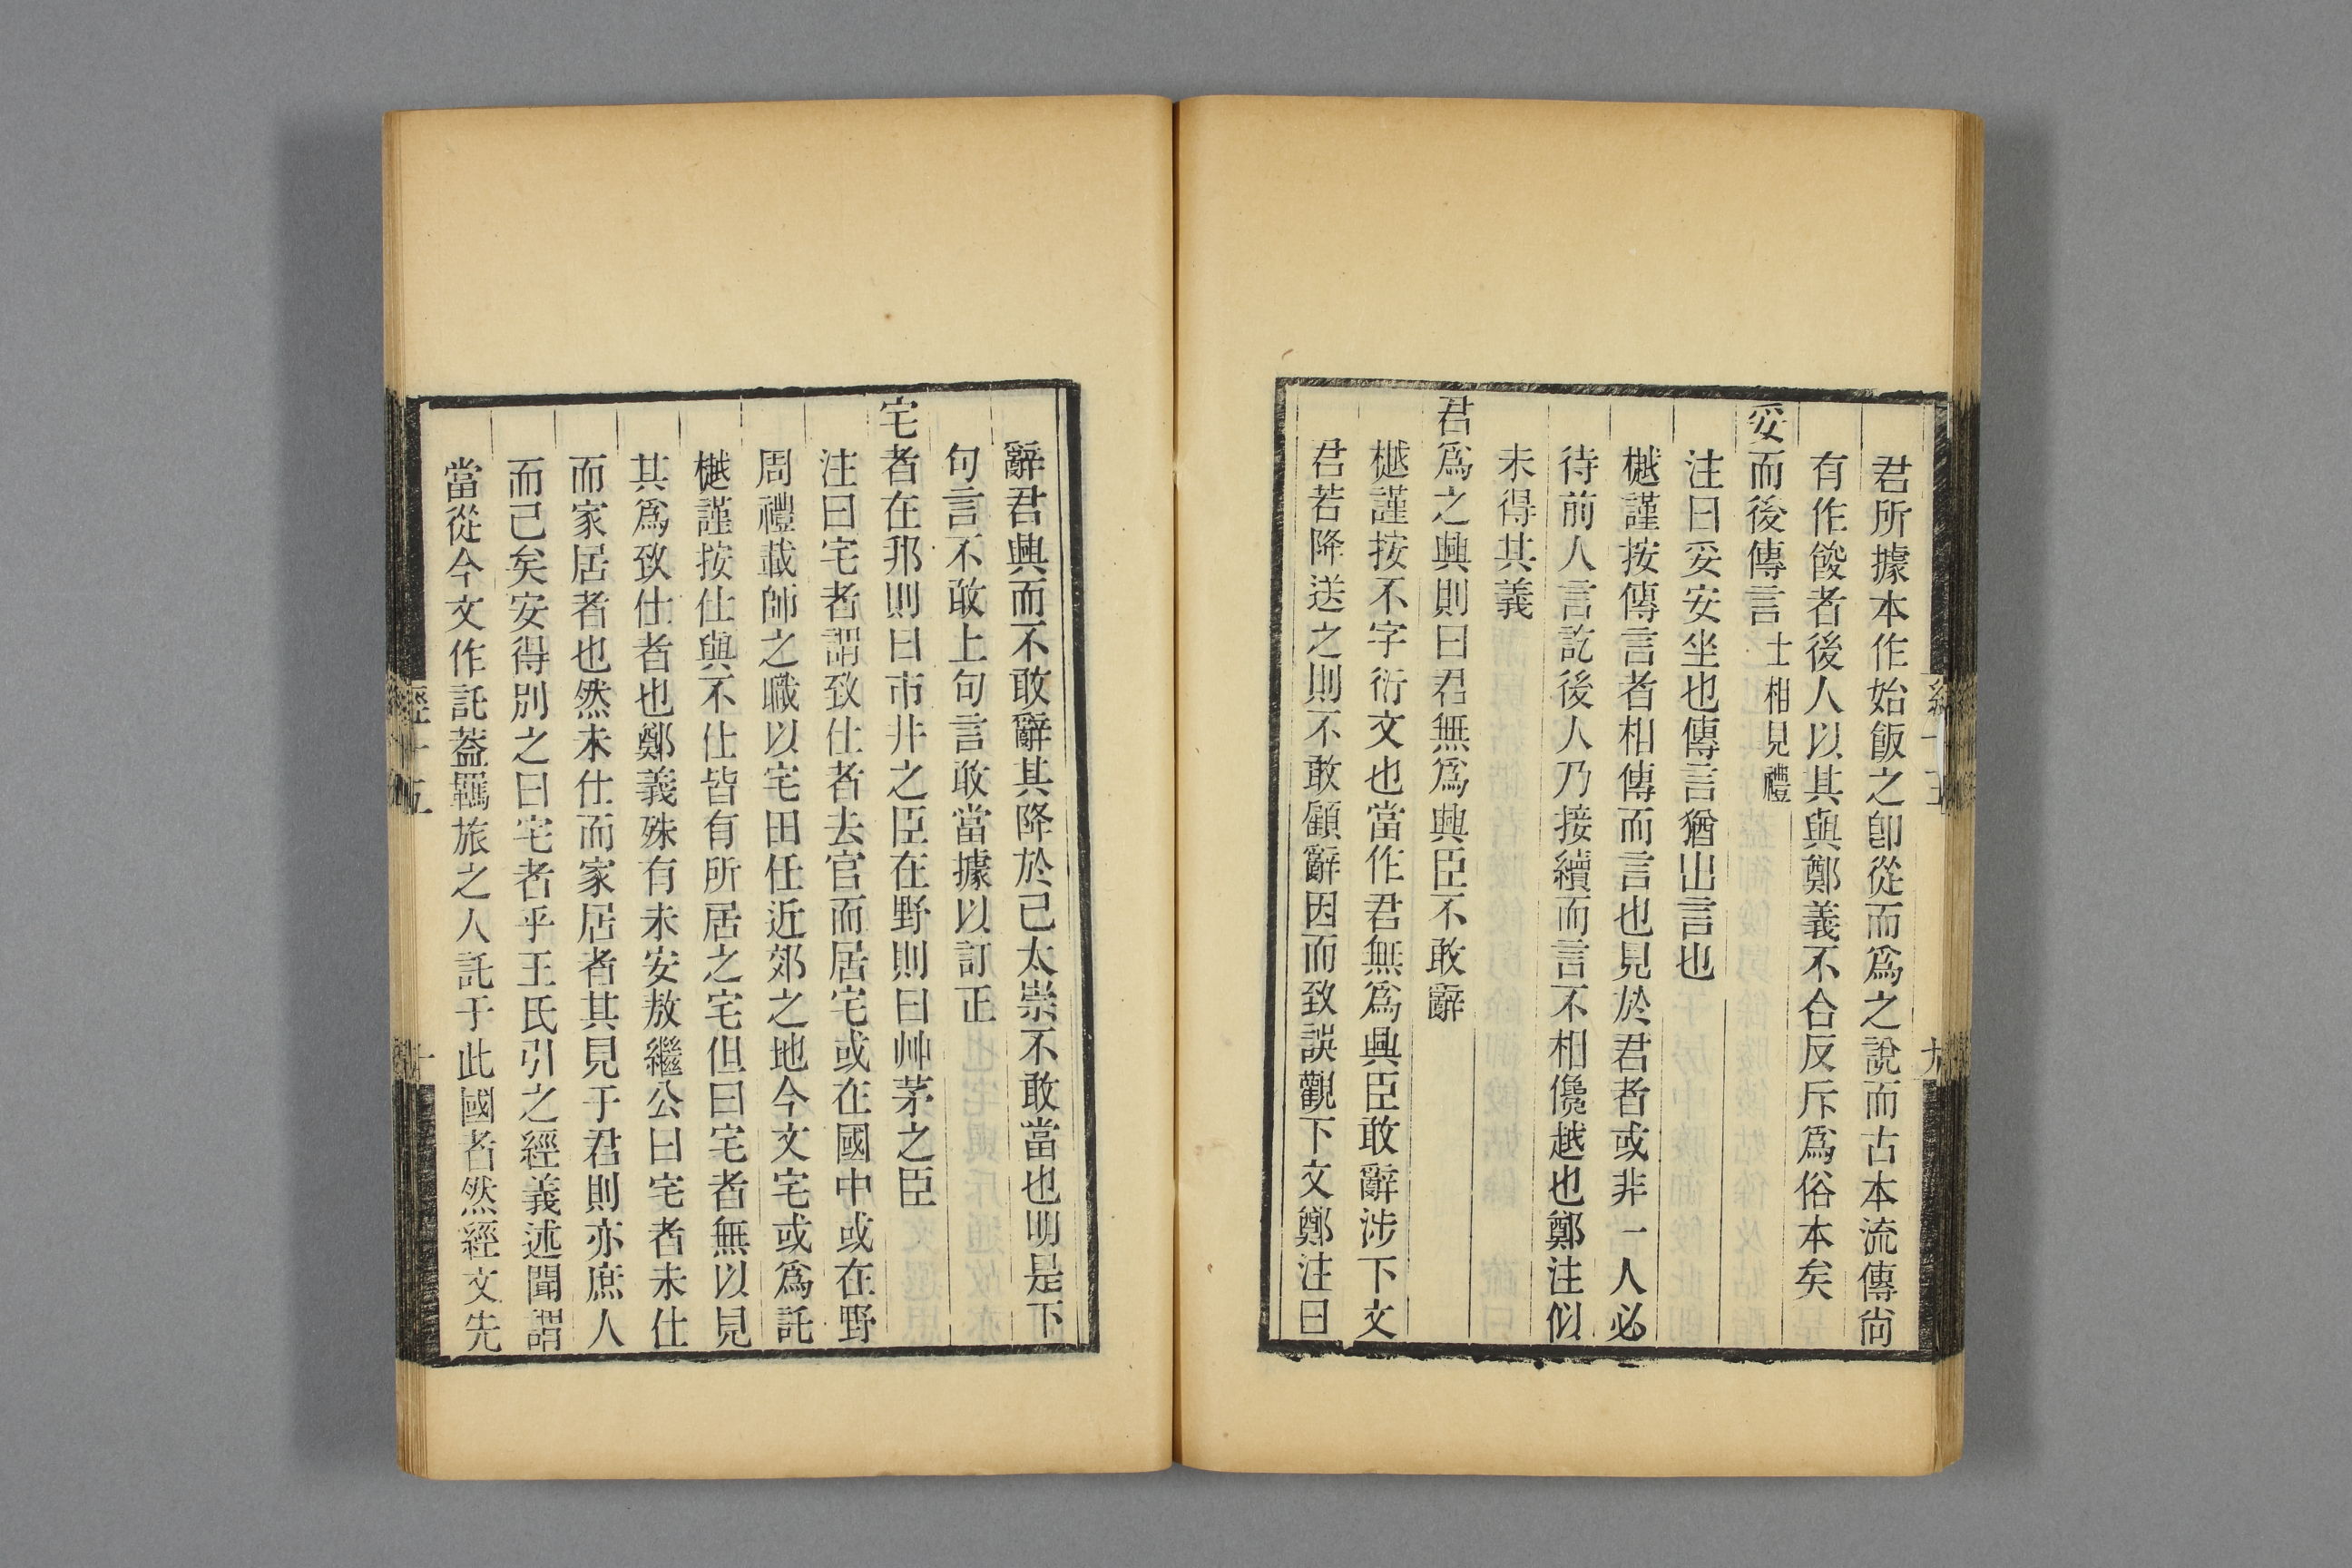 君所據本作始飯之卽從而爲之說而古本流傳尙
有作餕者後人以其與鄭義不合反斥爲俗本矣
妥而後傳言士相見禮
注曰妥安坐也傳言猶出言也
樾謹按傳言者相傳而言也見於君者或非一人必
待前人言訖後人乃接續而言不相儳越也鄭注似
未得其義
君爲之興則曰君無爲興臣不敢辭
樾謹按不字衍文也當作君無爲興臣敢辭涉下文
君若降送之則不敢顧辭因而致誤觀下文鄭注曰
辭君興而不敢辭其降於己太崇不敢當也明是下
句言不敢上句言敢當據以訂正
宅者在邦則曰市井之臣在野則曰艸茅之臣
注曰宅者謂致仕者去官而居宅或在國中或在野
周禮載師之職以宅田任近郊之地今文宅或爲託
樾謹按仕與不仕皆有所居之宅但曰宅者無以見
其爲致仕者也鄭義殊有未安敖繼公曰宅者未仕
而家居者也然未仕而家居者其見于君則亦庶人
而已矣安得別之曰宅者乎王氏引之經義述聞謂
當從今文作託葢羈旅之人託于此國者然經文先